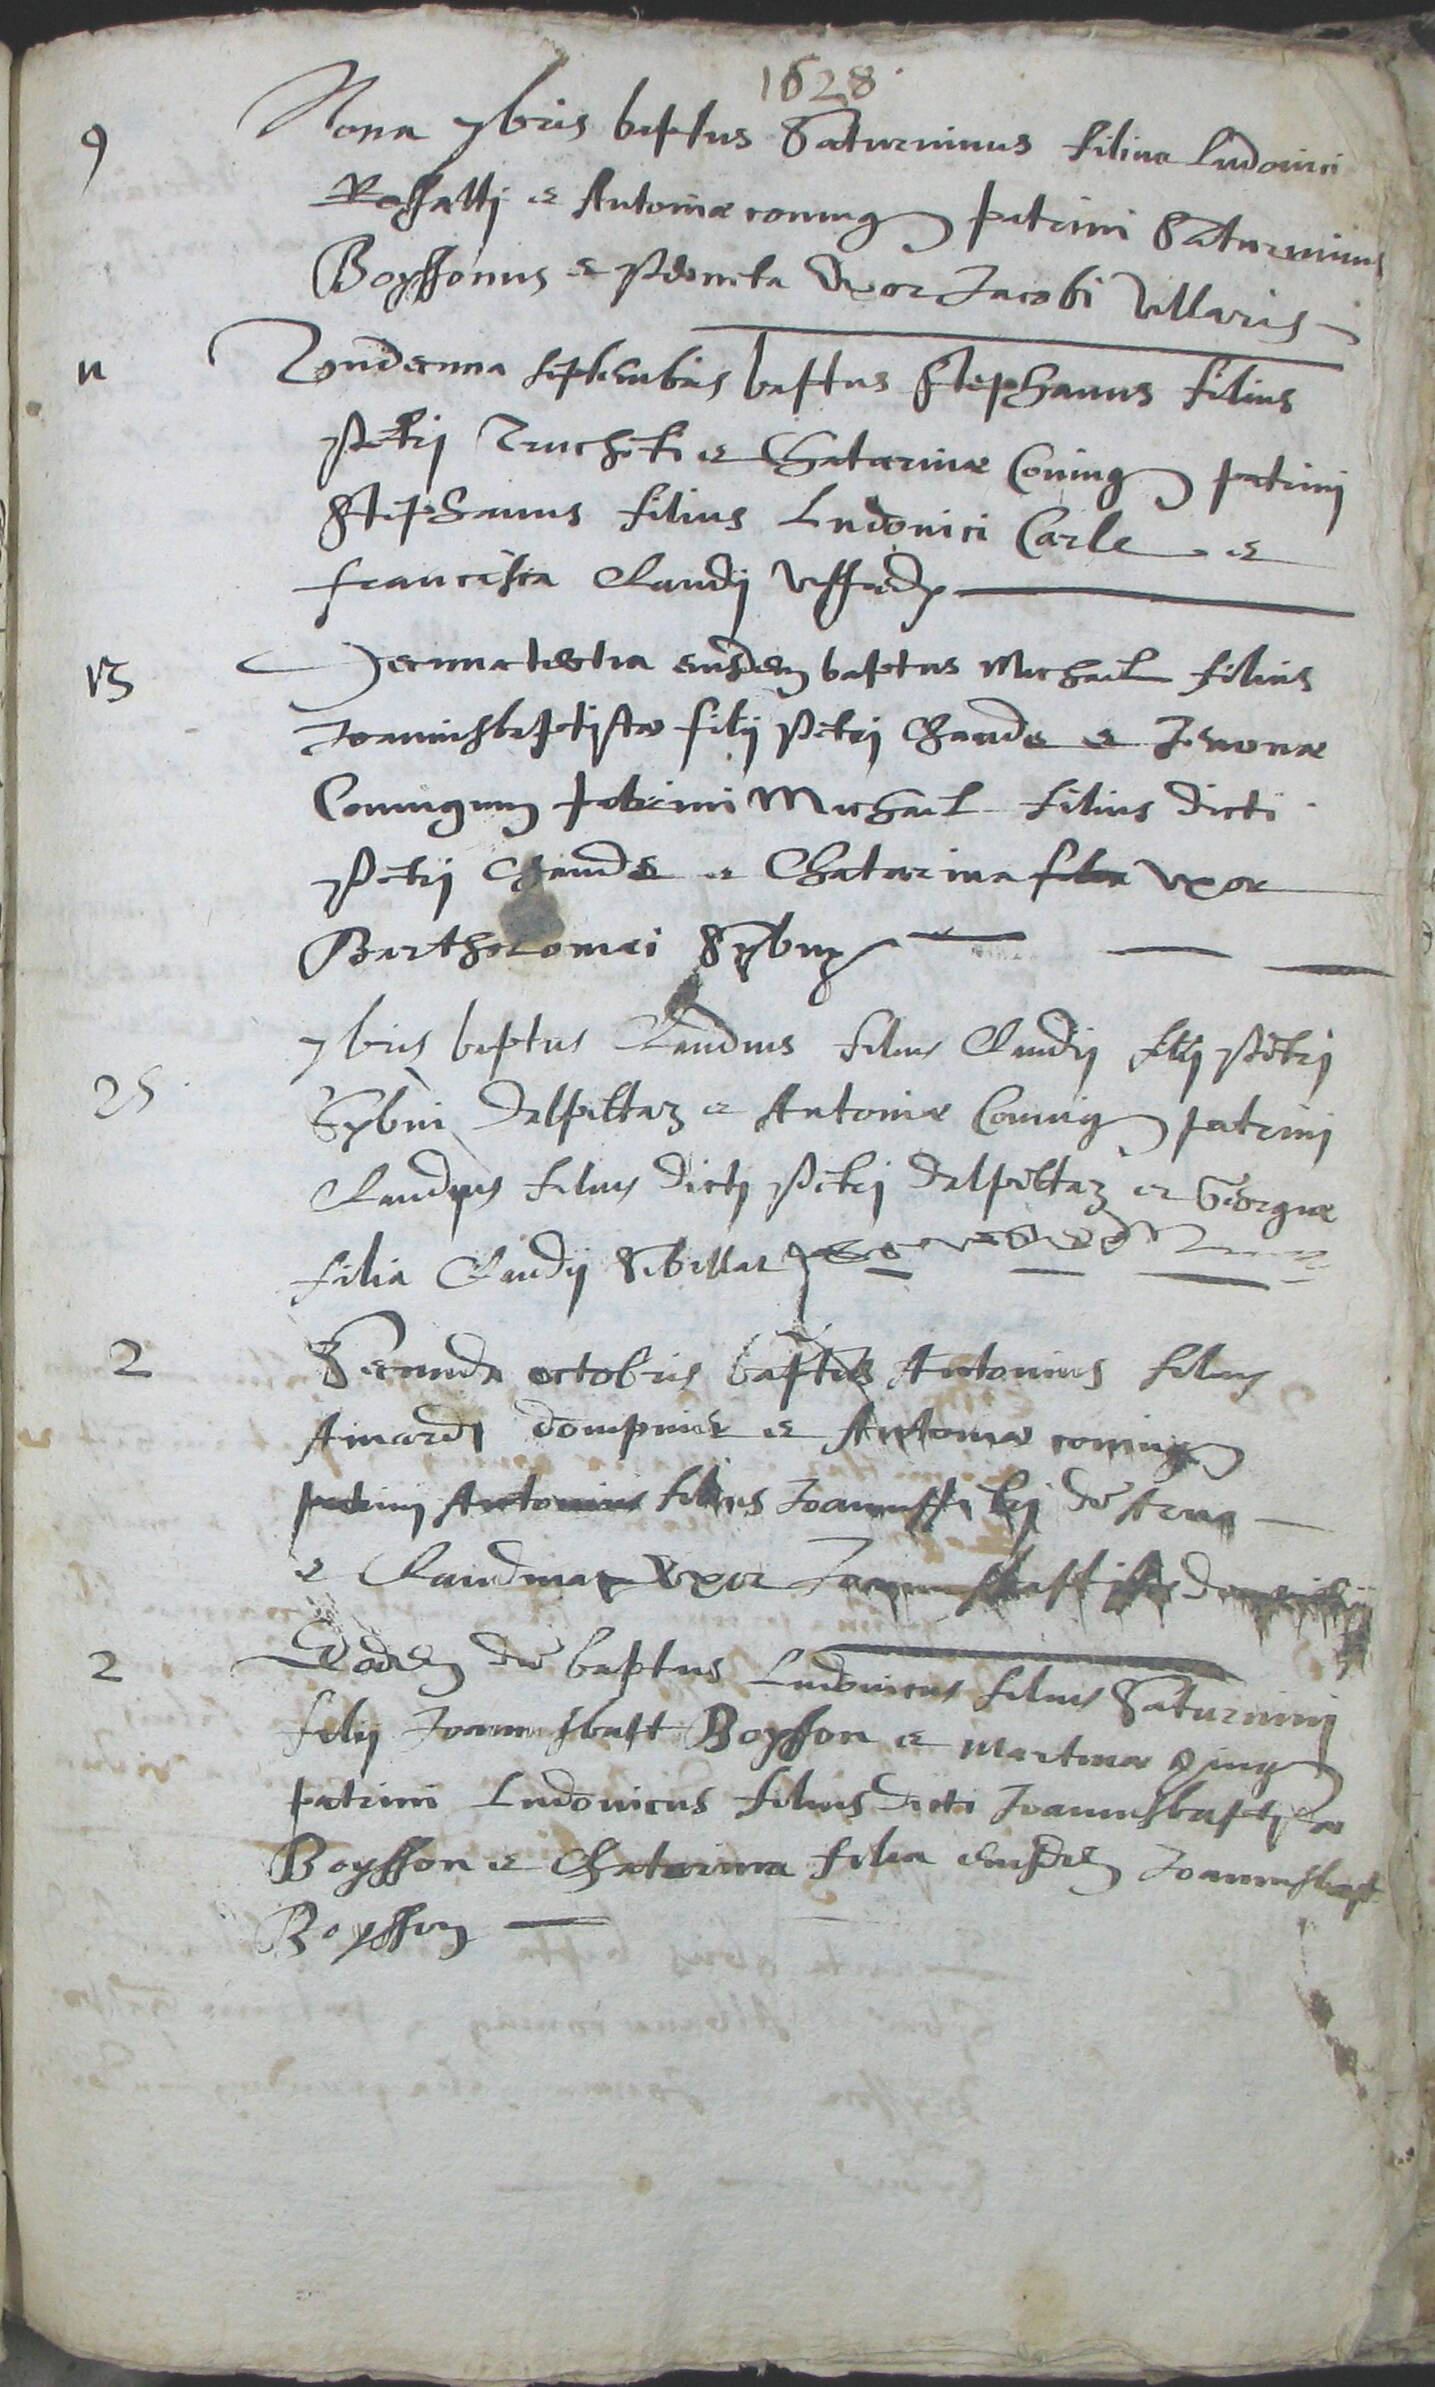 1628
9 Nona 7bris baptus Saturninus filius Ludovici
Rossatti et Antoniæ coniug patrini Saturninus
Boyssonus et uxor Jacobi Villaris
11 Undecima septembris baptus Stephanus filius
Petri Truchiti et Chatarinæ Coniug patrini
Stephanus filius Ludovici Carle et
francisca Claudij
13 Decimatertia eiusdem baptus Michael filius
Joannisbaptistæ filij Petri Chaude et
Coniugum patrini Michael filius dicti
Petri Chaude et Chatarina filia uxor
Bartholomei
25 7bris baptus Claudius filius Claudij filij Petri
Delpiltaz et Antoniæ Coniug patrini
Claudius filius dicti Petri Delpiltaz et Georgiæ
filia Claudij
2 Secunda octobris baptus Antonius filius
Aimardi dompnier et Antoniæ coniug
patrini Antonius filius
et Claudina uxor
2 Eadem die baptus Ludovicus filius Saturnini
filij Joannisbapt Boysson et Martinæ
patrini Ludovicus filius dicti Joannisbaptistæ
Boysson et Chatarina filia eiusdem Joannisbapt
Boysson